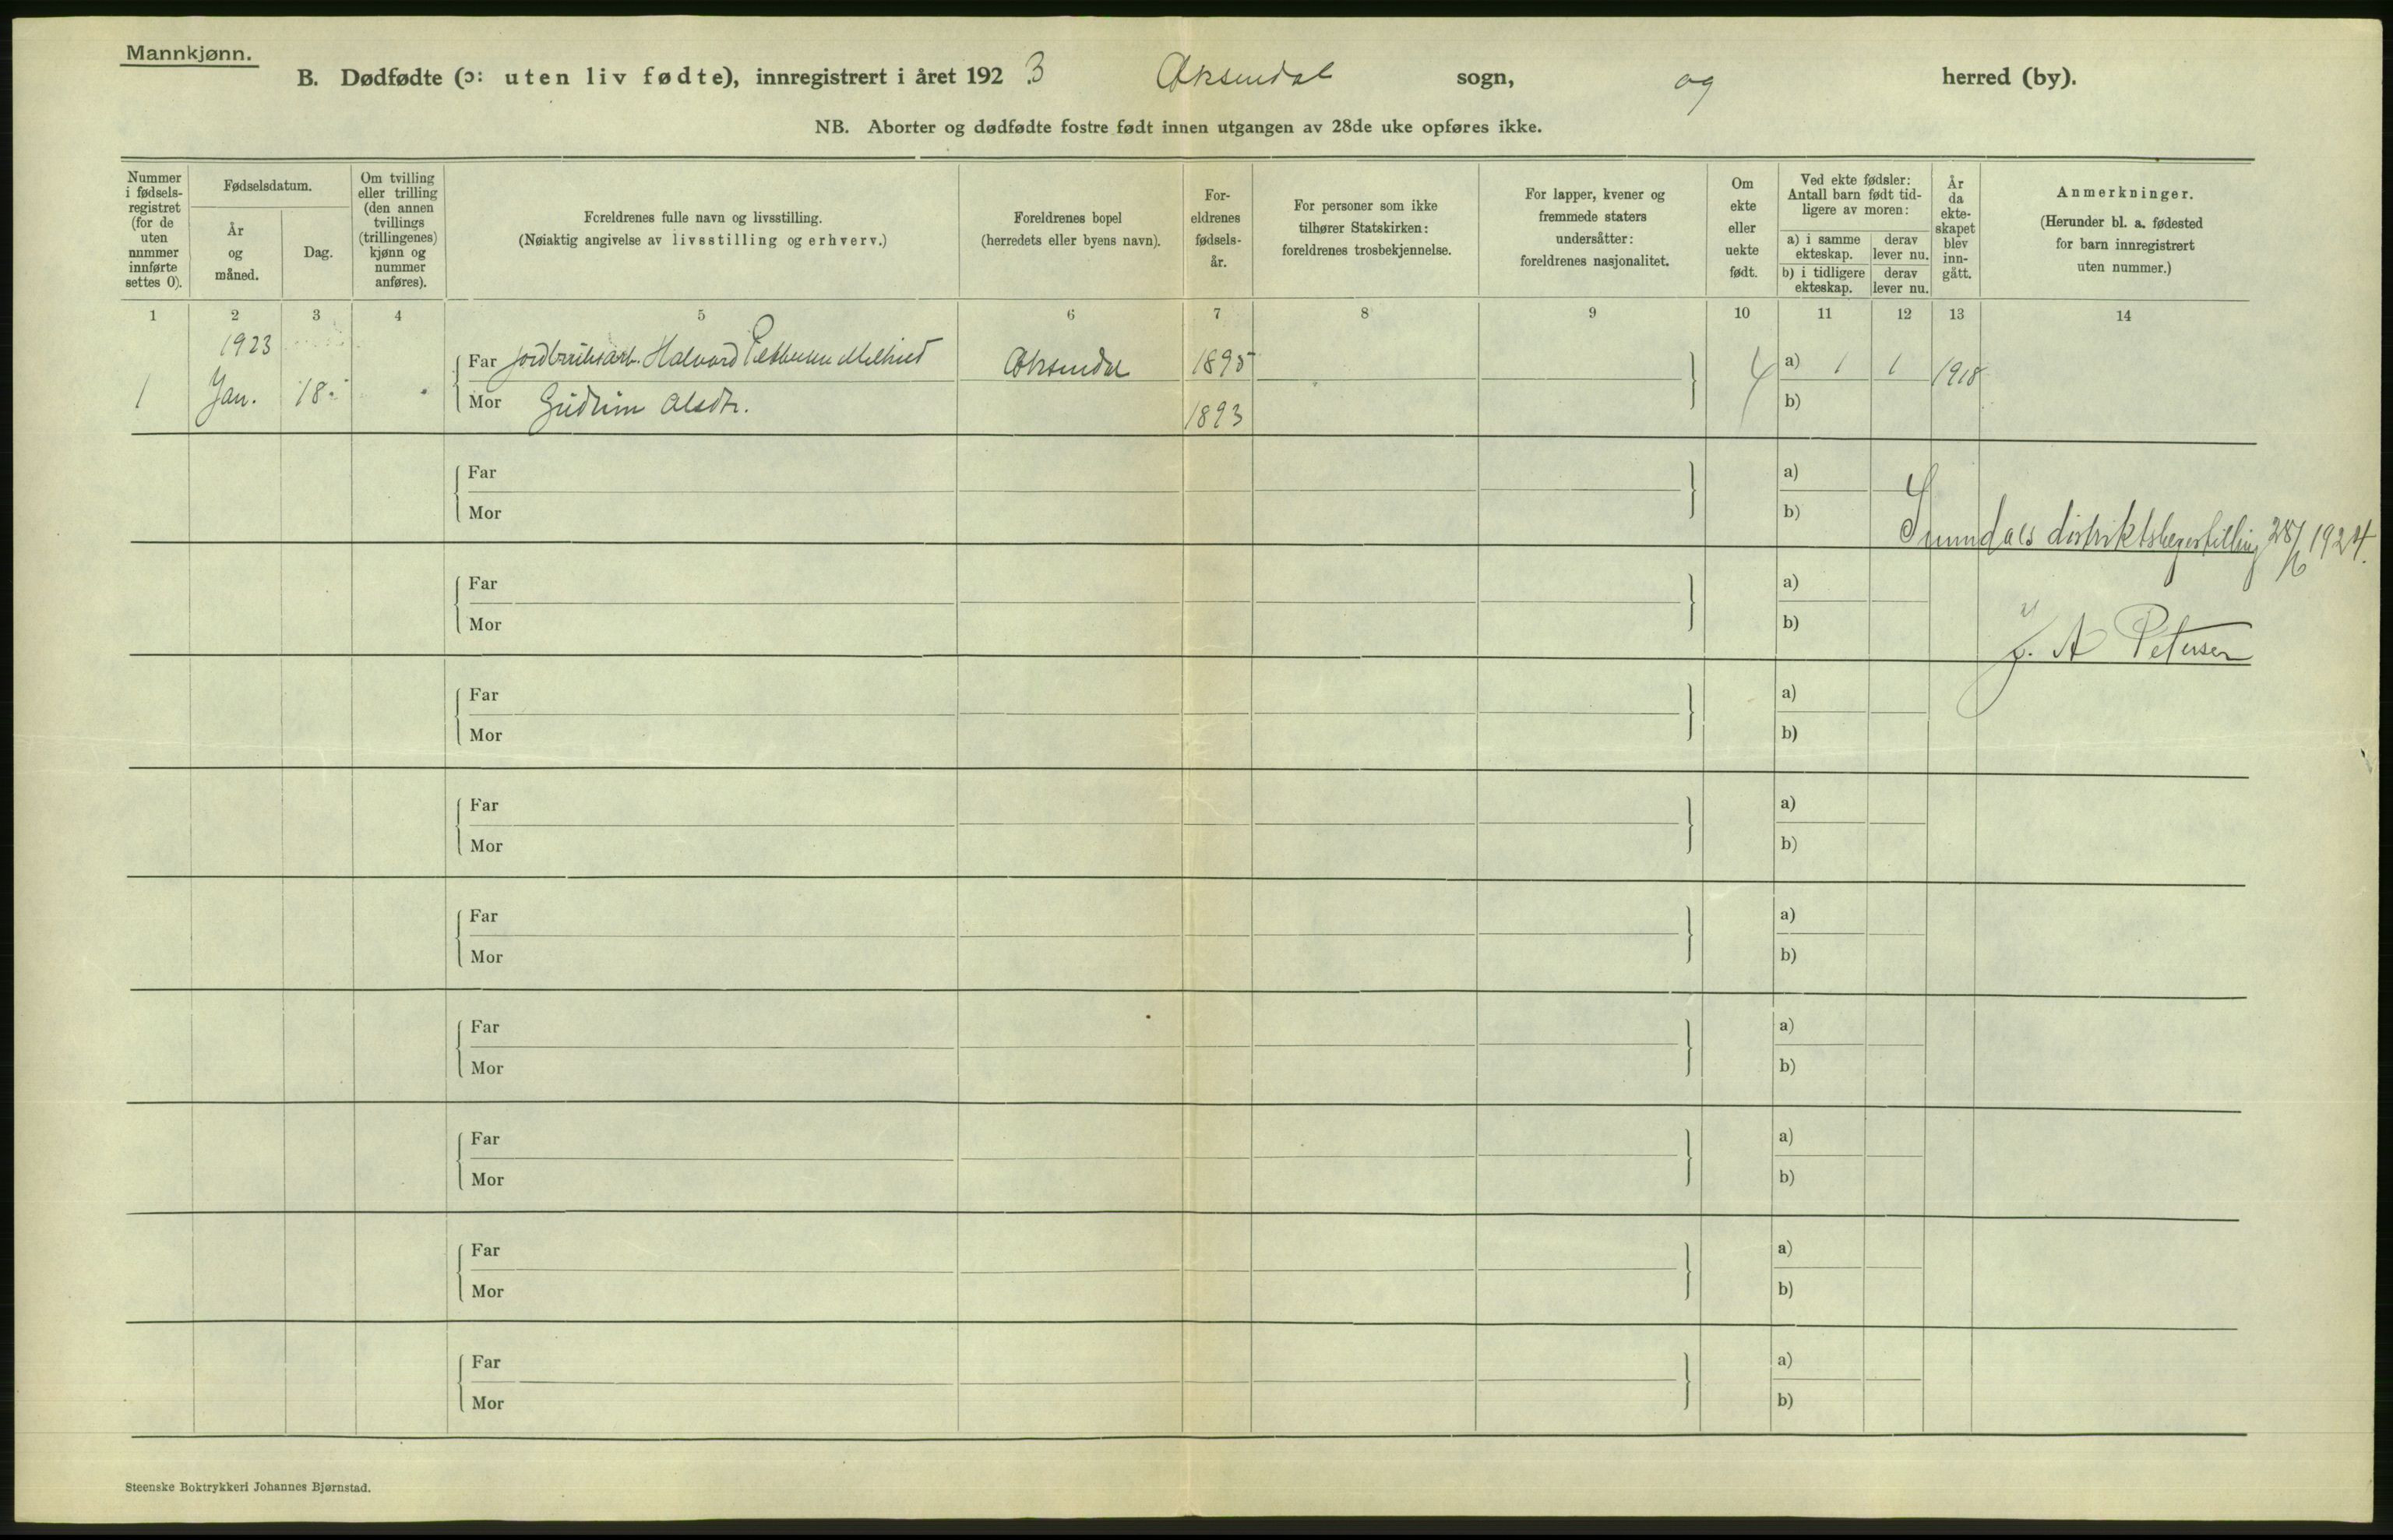 Mannkjønn.
B. Dødfødte (ɔ: uten liv fødte), innregistrert i året 1923 Øksendal sogn, og herred (by).
NB. Aborter og dødfødte fostre født innen utgangen av 28de uke opføres ikke.
Nummer i fødsels-registret (for de uten nummer innførte settes 0).
Fødselsdatum.
År og måned.
Dag.
Om tvilling eller trilling (den annen tvillings (trillingenes) kjønn og nummer anføres).
Foreldrenes fulle navn og livsstilling.
(Nøiaktig angivelse av livsstilling og erhverv.)
Foreldrenes bopel
(herredets eller byens navn).
For-eldrenes fødsels-år.
For personer som ikke tilhører Statskirken: foreldrenes trosbekjennelse.
For lapper, kvener og fremmede staters undersåtter: foreldrenes nasjonalitet.
Om ekte eller uekte født.
Ved ekte fødsler: Antall barn født tid-ligere av moren:
a) i samme ekteskap.
derav lever nu.
b) i tidligere ekteskap.
derav lever nu.
År da ekte-skapet blev inn-gått.
Anmerkninger.
(Herunder bl. a. fødested for barn innregistrert uten nummer.)
1 2 3 4 5 6 7 8 9 10 11 12 13 14
1923
Far Jordbruksarb. Halvard Øksendal 1895 a) 1 1 1918
1 Jan. 18. Mor Gudrun Olsdtr. 1893 b)
Far a)
Mor b)
Sunndals distriktslegestilling 28/6 1924.
Far a)
Mor b)
J. A Petersen
Far a)
Mor b)
Far a)
Mor b)
Far a)
Mor b)
Far a)
Mor b)
Far a)
Mor b)
Far a)
Mor b)
Far a)
Mor b)
Steenske Boktrykkeri Johannes Bjørnstad.